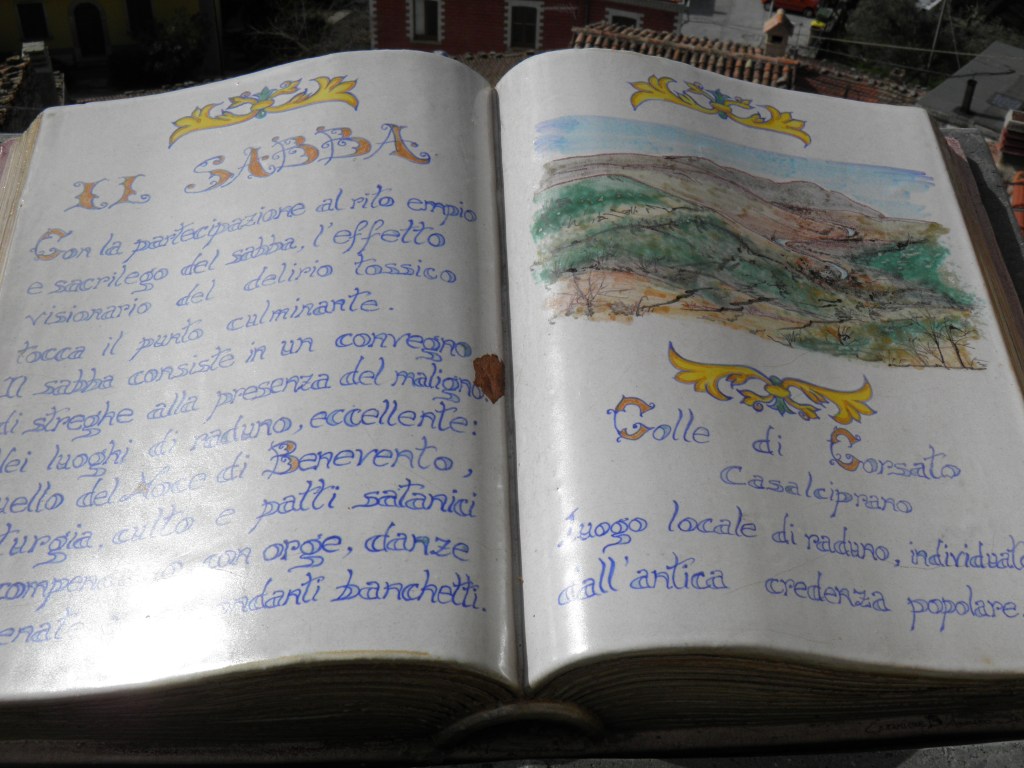 IL SABBA
Con la partecipazione al rito empio
e sacrilego del sabba, l'effetto
visionario del delirio tossico
tocca il punto culminante.
Il sabba consiste in un convegno
di streghe alla presenza del maligno.
dei luoghi di raduno, eccellente:
quello del Noce di Benevento,
culto e patti satanici
con orge, danze
banchetti.
Colle di Corsato
Casalciprano
Luogo locale di raduno, individuato
dall'antica credenza popolare.